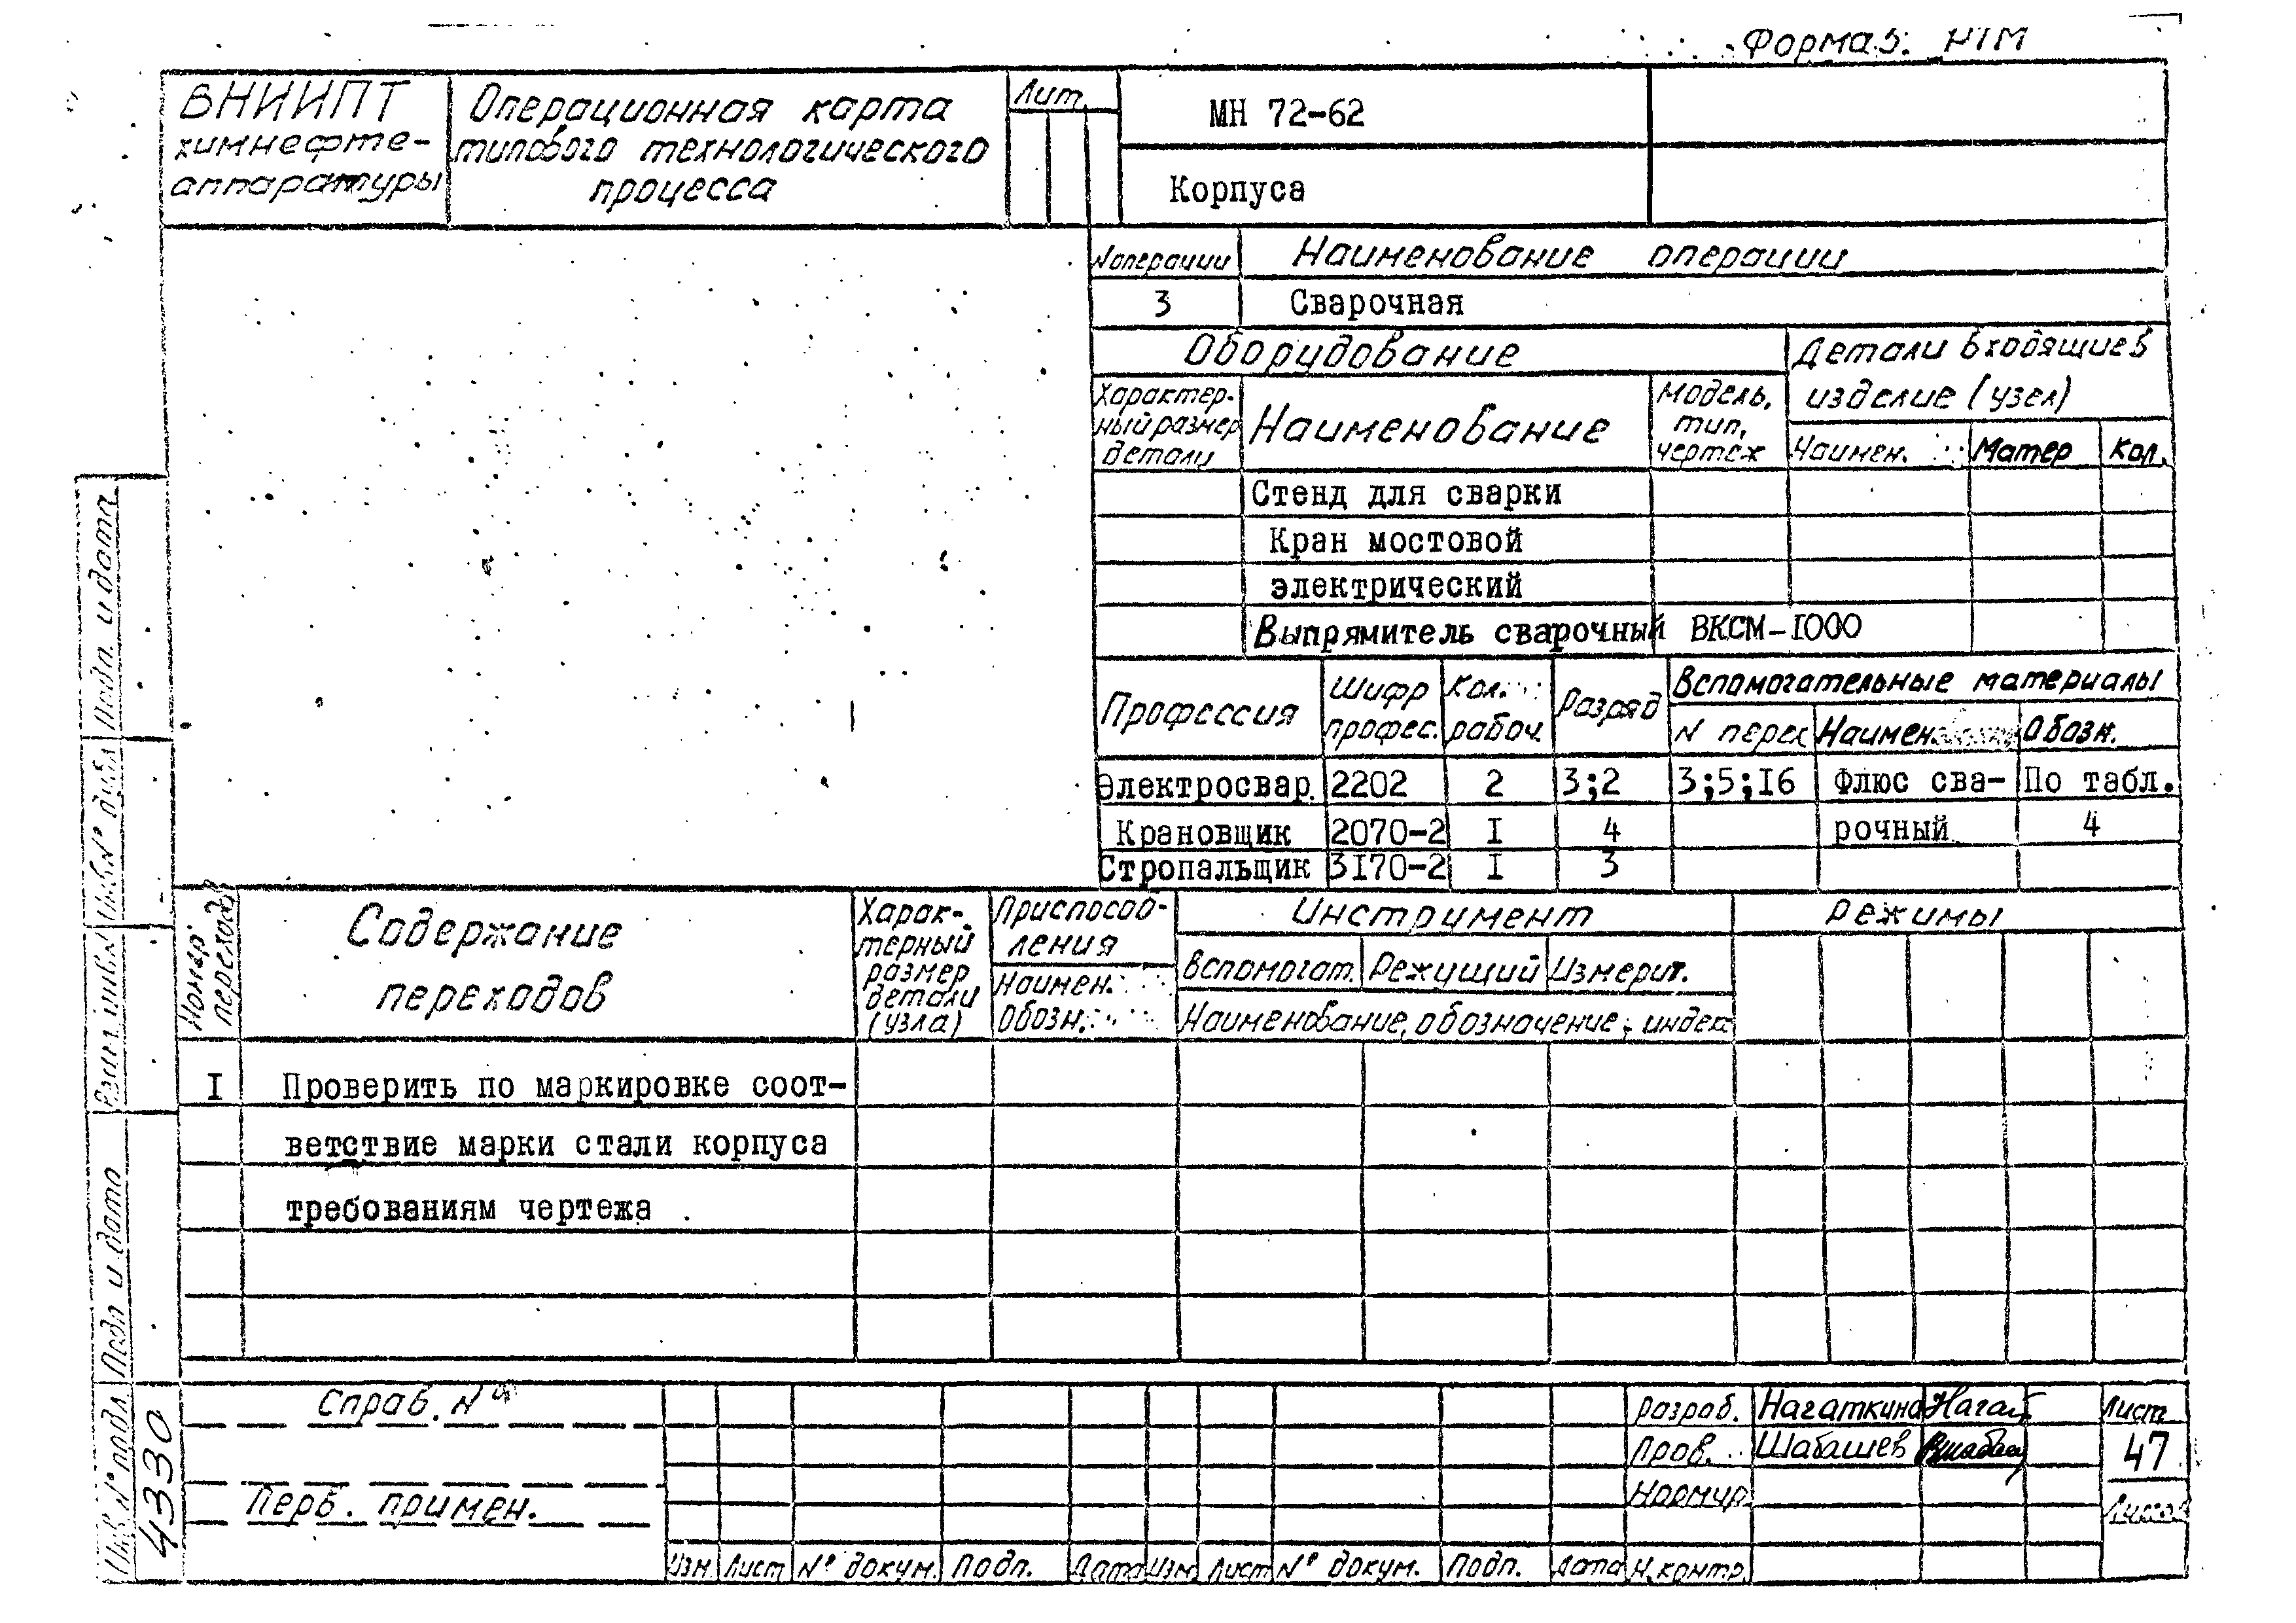 Форма 5. НТМ
ВНИИПТ
химнефте-
аппаратуры
Операционная карта
типового технологического
процесса
Лит.
МН 72-62
Корпуса
N операции
Наименование операции
3
Сварочная
Оборудование
Детали входящие в
изделие (узел)
Характер-
ный размер
детали
Наименование
Модель,
тип,
чертеж
Наимен.
Матер
Кол.
Стенд для сварки
Кран мостовой
электрический
Выпрямитель сварочный ВКСМ-I000
Профессия
Шифр
профес.
Кол.
рабоч.
Разряд
Вспомогательные материалы
N перех
Наимен.
Обозн.
Электросвар. 2202 2 3;2 3;5;I6 Флюс сва- По табл.
Крановщик 2070-2 I 4 рочный 4
Стропальщик 3I70-2 I 3
Номер
перехода
Содержание
переходов
Харак-
терный
размер
детали
(узла)
Приспособ-
ления
Наимен.
Обозн.
Инструмент
Вспомогат. Режущий Измерит.
Наименование, обозначение, индекс
Режимы
I Проверить по маркировке соот-
ветствие марки стали корпуса
требованиям чертежа
Справ. N°
Перв. примен.
Изм. Лист N° докум. Подп. Дата Изм Лист N° докум. Подп. Дата
Разраб. Нагаткина Нагат
Пров. Шабашев
Нормир.
Н.контр.
Лист
47
Листов
Подп. и дата
Инв N° дубл
Взам. инв. N
Подп и дата
Инв N° подл
4330